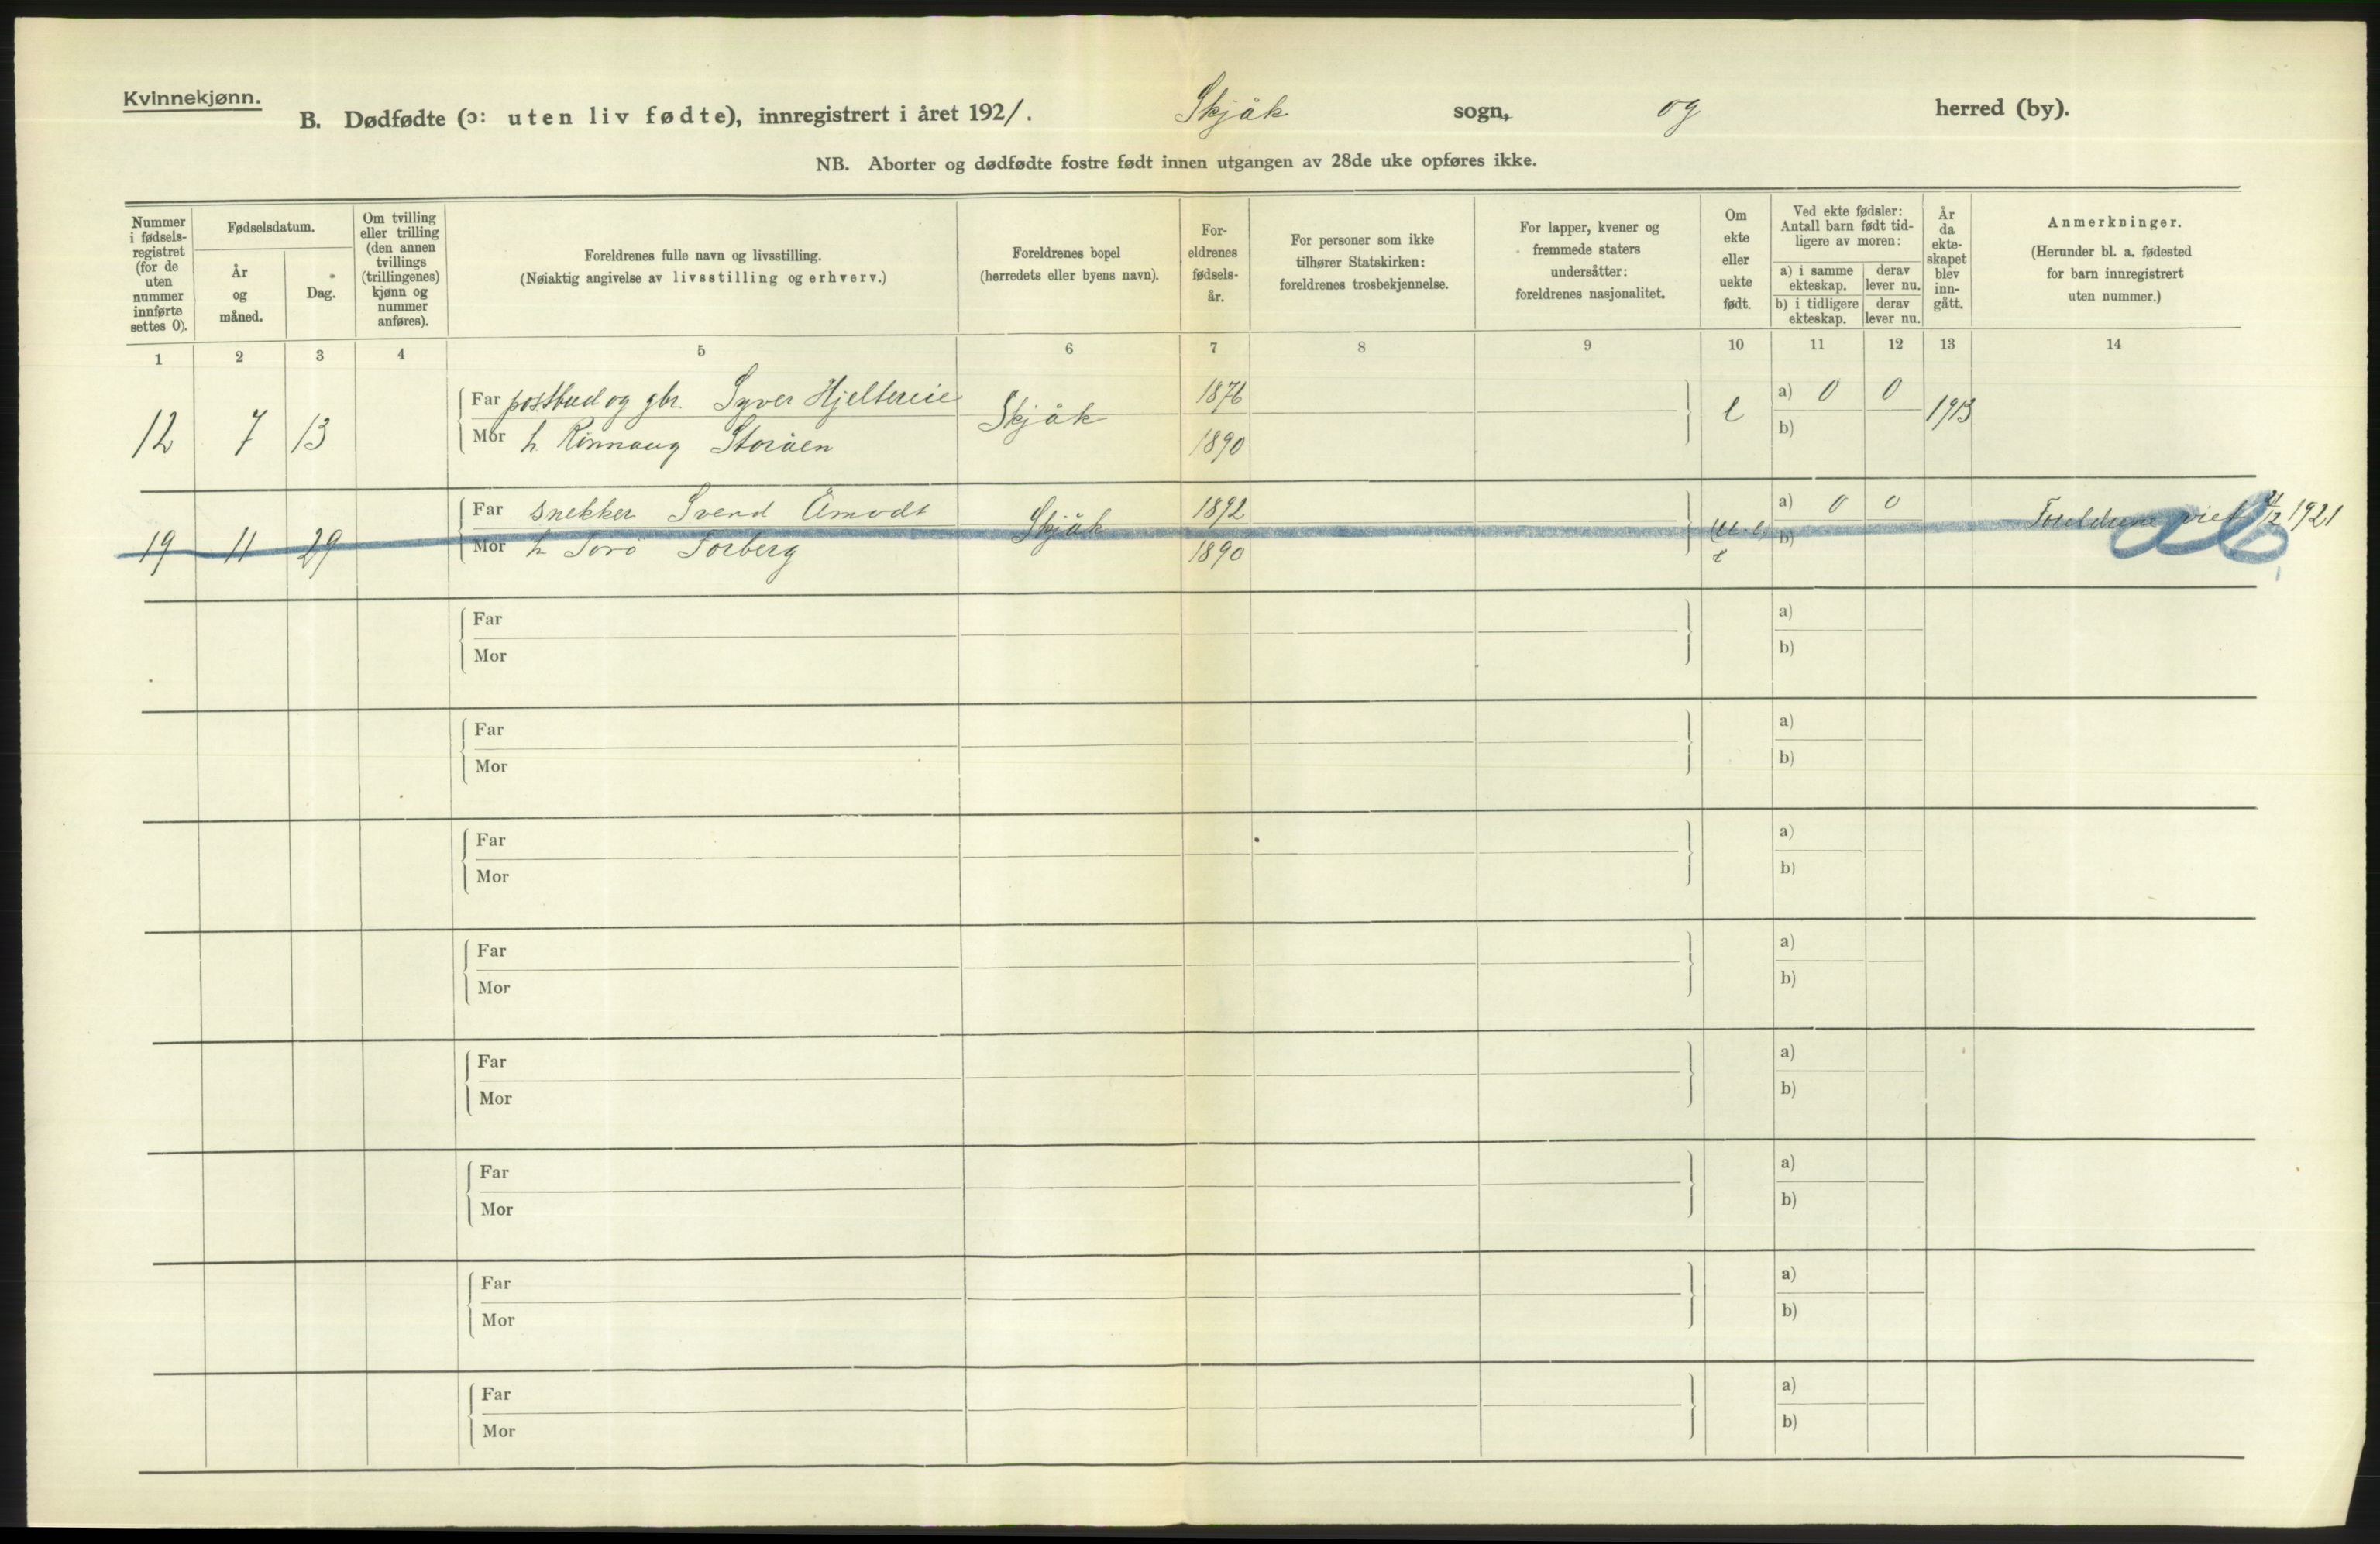 Kvinnekjønn.
B. Dødfødte (ɔ: uten liv fødte), innregistrert i året 1921. Skjåk sogn, og herred (by).
NB. Aborter og dødfødte fostre født innen utgangen av 28de uke opføres ikke.
Nummer i fødselsregistret (for de uten nummer innførte settes 0).
Fødselsdatum.
År og måned.
Dag.
Om tvilling eller trilling (den annen tvillings (trillingenes) kjønn og nummer anføres).
Foreldrenes fulle navn og livsstilling.
(Nøiaktig angivelse av livsstilling og erhverv.)
Foreldrenes bopel
(herredets eller byens navn).
Foreldrenes fødselsår.
For personer som ikke tilhører Statskirken: foreldrenes trosbekjennelse.
For lapper, kvener og fremmede staters undersåtter: foreldrenes nasjonalitet.
Om ekte eller uekte født.
Ved ekte fødsler: Antall barn født tidligere av moren:
a) i samme ekteskap. derav lever nu.
b) i tidligere ekteskap. derav lever nu.
År da ekteskapet blev inngått.
Anmerkninger.
(Herunder bl. a. fødested for barn innregistrert uten nummer.)
1 2 3 4 5 6 7 8 9 10 11 12 13 14
Far postbud og gbr. Syver Hjeltereie 1876 a) 0 0
12 7 13 Skjåk e 1913
Mor h. Rønnaug Storåen 1890 b)
Far snekker Svend Åmodt 1892 a) 0 0
19 11 29 Skjåk Foreldrene viet 1921
Mor h. Torø Torberg 1890 e b)
Far a)
Mor b)
Far a)
Mor b)
Far a)
Mor b)
Far a)
Mor b)
Far a)
Mor b)
Far a)
Mor b)
Far a)
Mor b)
Far a)
Mor b)